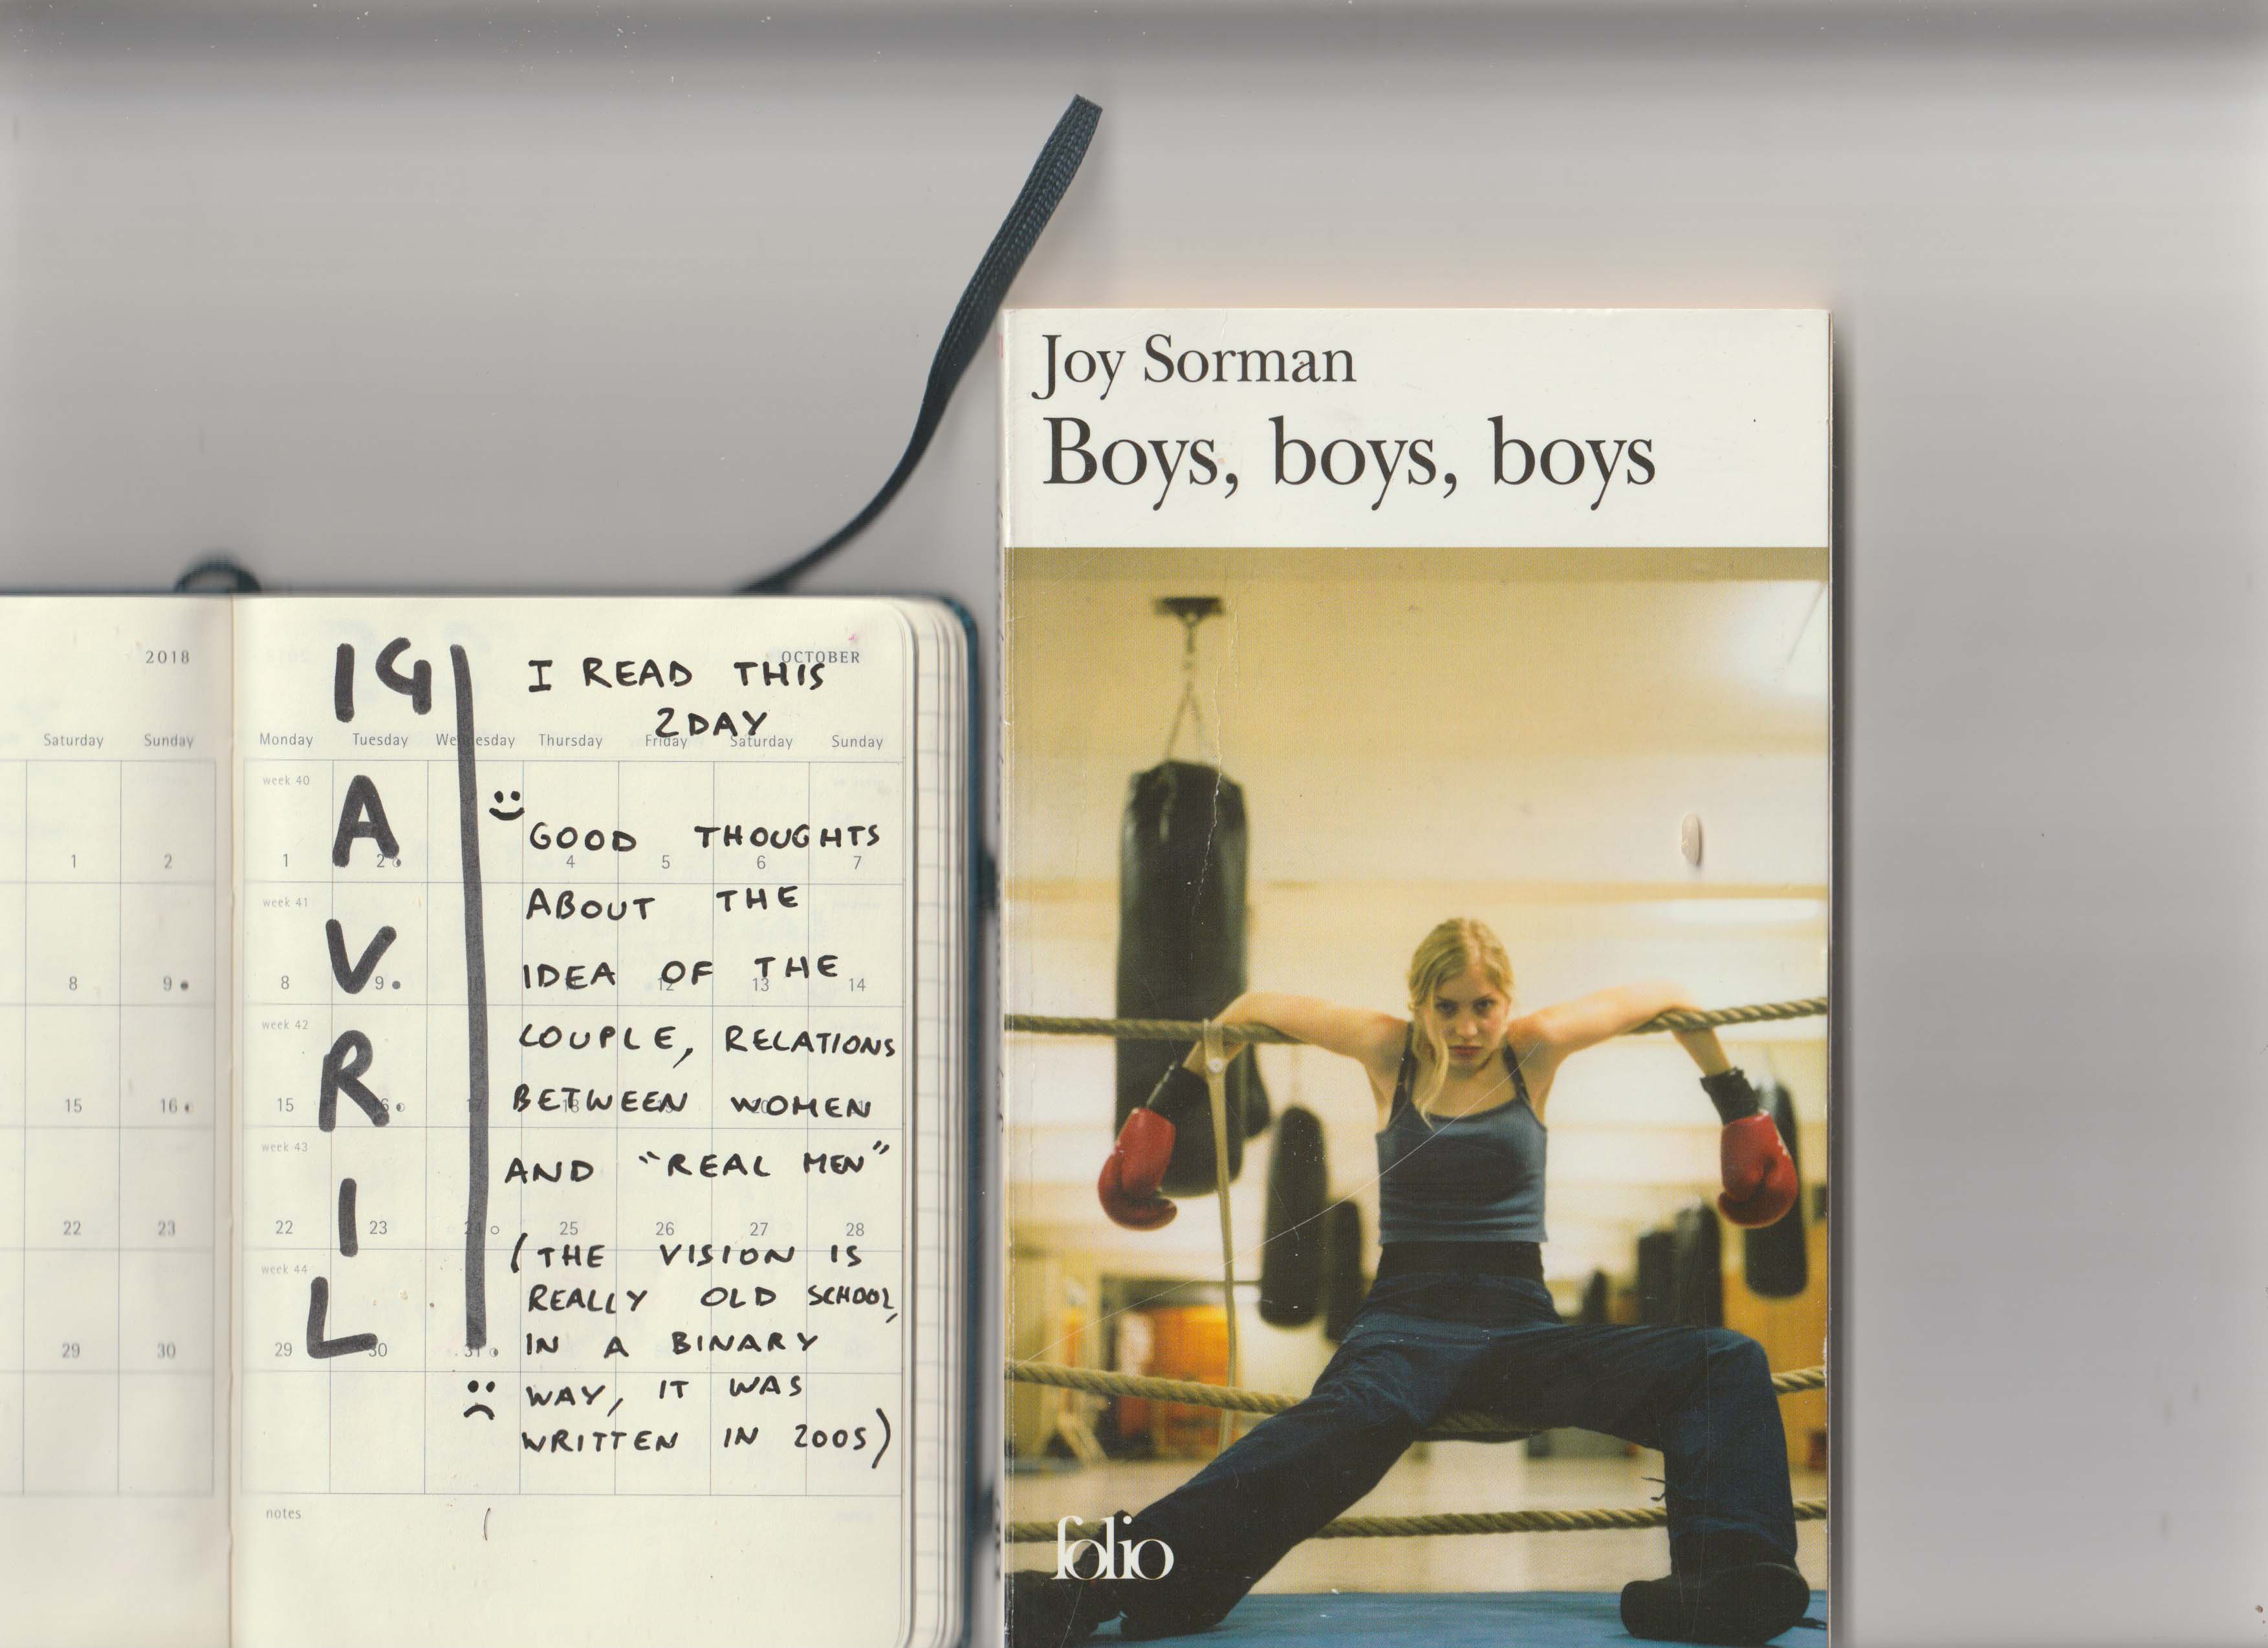 2018
Saturday Sunday
1 2
8 9
15 16
22 23
29 30
OCTOBER
Monday Tuesday Wednesday Thursday Friday Saturday Sunday
week 40
1 2 4 5 6 7
week 41
8 9 12 13 14
week 42
15 16 17 18
week 43
22 23 24 25 26 27 28
week 44
29 30 31
notes
19
A
V
R
I
L
I READ THIS
2DAY
GOOD THOUGHTS
ABOUT THE
IDEA OF THE
COUPLE, RELATIONS
BETWEEN WOMEN
AND "REAL MEN"
(THE VISION IS
REALLY OLD SCHOOL,
IN A BINARY
WAY, IT WAS
WRITTEN IN 2005)
Joy Sorman
Boys, boys, boys
folio